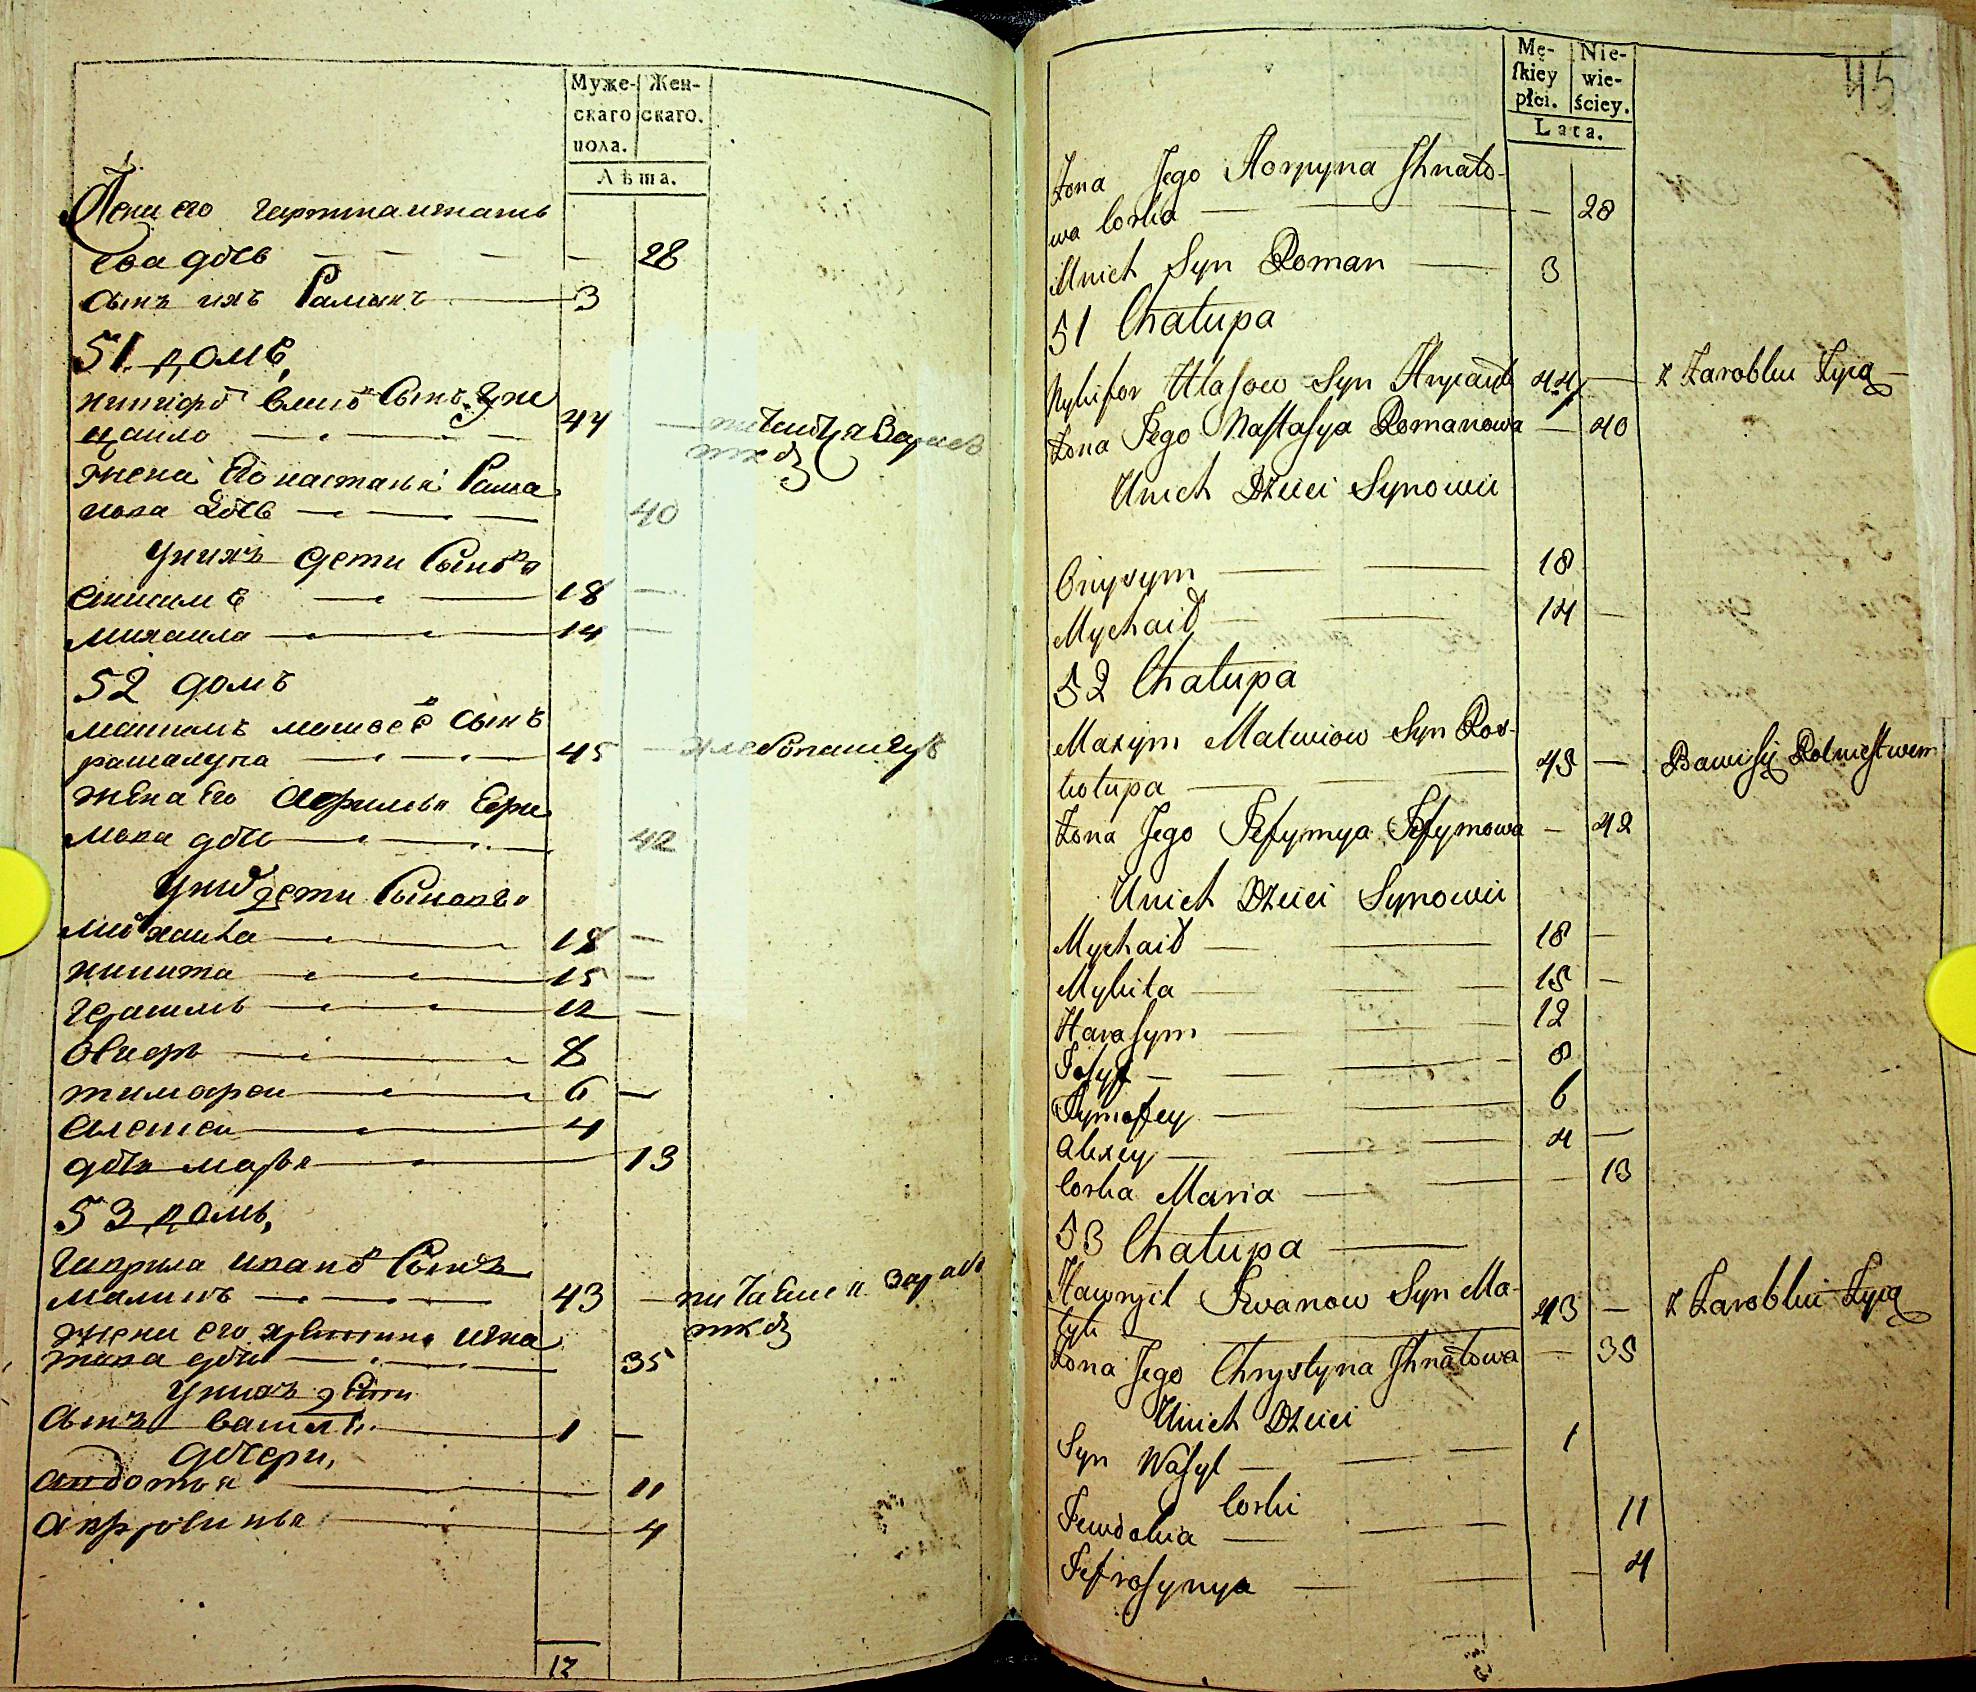 Муже-
скаго
пола.
Жен-
скаго.
Лѣта.
его
дочь — 28
сынъ ихъ Раманъ — 3
51 домъ,
сынъ
44
жена Его настасья Рама
нова дочь — 40
у нихъ дети сыновя
анисимъ — 18 —
михаила — 14 —
52 домъ
максимъ матвеевъ сынъ
45 — хлебопашецъ
жена Его
дочь — 42
дети
михаила — 18 —
никита — 15 —
герасимъ — 12 —
8
тимофеи — 6 —
алексеи — 4
дочь марья — 13
53 домъ,
гаврила иванов сынъ
43 — питаеися зараб
откоз
жена его игна
това дочь — 35
у нихъ дети
сынъ васили — 1 —
дочери,
авдотья — 11
4
12
45
Mę-
skiey
płci.
Nie-
wie-
ściey.
Lata.
Żona Jego Horpyna Ihnato-
wa Corka — 28
Unich Syn Roman — 3
51 Chałupa
Nykifor Ułasow Syn 44 — z Zarobku Żyią
Żona Jego Nastasya Romanowa — 40
Unich Dzieci Synowie
Onysym — 18
Mychaił — 14 —
52 Chałupa
Maxym Matwiow Syn Ros-
tołupa — 45 — Bawi się Rolnictwem
Żona Jego Jefymya Jefymowa — 42
Unich Dzieci Synowie
Mychaił — 18 —
Mykita — 15 —
Harasym — 12
Josyf — 8
Tymofey — 6
Alexey — 4 —
Corka Maria — 13
53 Chałupa —
Hawryił Iwanow Syn Ma-
łyk 43 — z Zarobku Żyią
Żona Jego Chrystyna Ihnatowa — 35
Unich Dzieci
Syn Wasyl — 1
Corki
Jewdokia — 11
Jefrosynya — 4